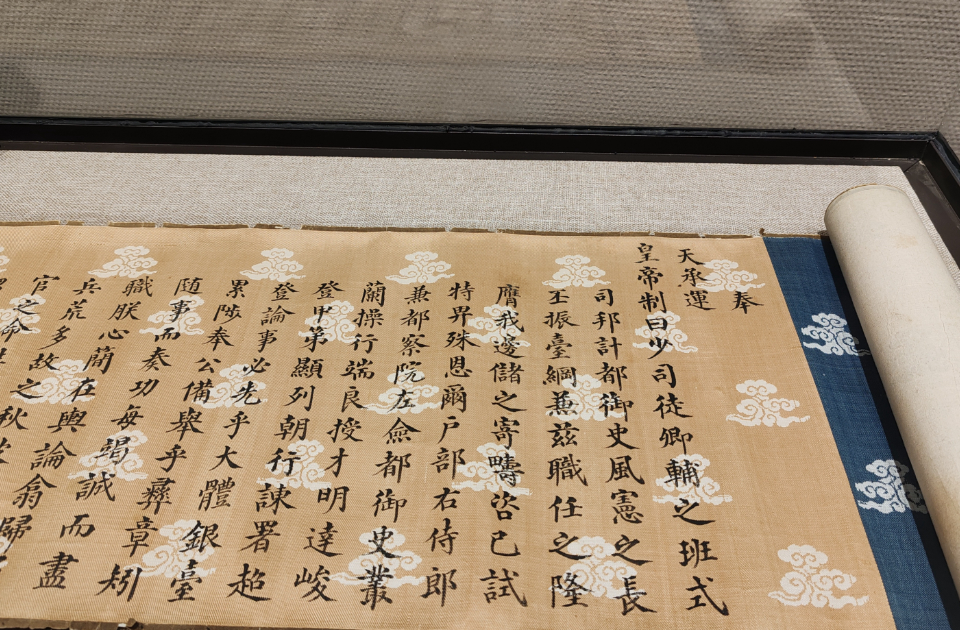 奉
天承運
皇帝制曰少司徒卿輔之班式
司邦計都御史風憲之長
丕振臺綱兼茲職任之隆
膺我邊儲之寄疇咨已試
特畀殊恩爾戶部右侍郎
兼都察院左僉都御史叢
蘭操行端良授才明達峻
登甲第顯列朝行諫署超
登論事必先乎大體銀臺
累陟奉公備舉乎彝章矧
随事而奏功每竭誠而盡
職朕心簡在輿論翕歸
兵荒多故之秋
官之命